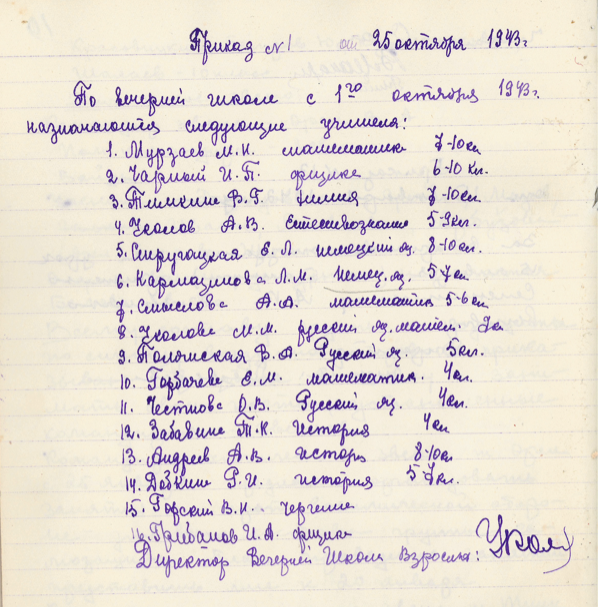 Приказ №1 от 25 октября 1943 г.
По вечерней школе с 1го октября 1943 г.
назначаются следующие учителя:
1. Мурзаев М.К. математике 7-10 кл
2. Чарный И.П. физике 6-10 кл.
3. Тимкине В.Г. химия 7-10 кл.
4. Уколов А.В. Естествознание 5-9 кл.
5. Стругацкая Е.Л. немецкий яз. 8-10 кл.
6. Кармазинова Л.М. Немец. яз. 5-7 кл
7. Смыслова А.А. математика 5-6 кл
8. Уколова М.М. русский яз. матем. 7 кл
9. В.А. Русский яз. 5 кл.
10. Горбачева Е.М. математика 4 кл
11. Честнова О.В. Русский яз. 4 кл.
12. Забавина Т.К. История 4 кл
13. Андреев А.В. история 8-10 кл
14. Добкин Р.И. история 5-7 кл.
15. Горский В.Н. черчение
16. Грибанов И.А. физик
Директор Вечерней Школы Взрослых: Укол